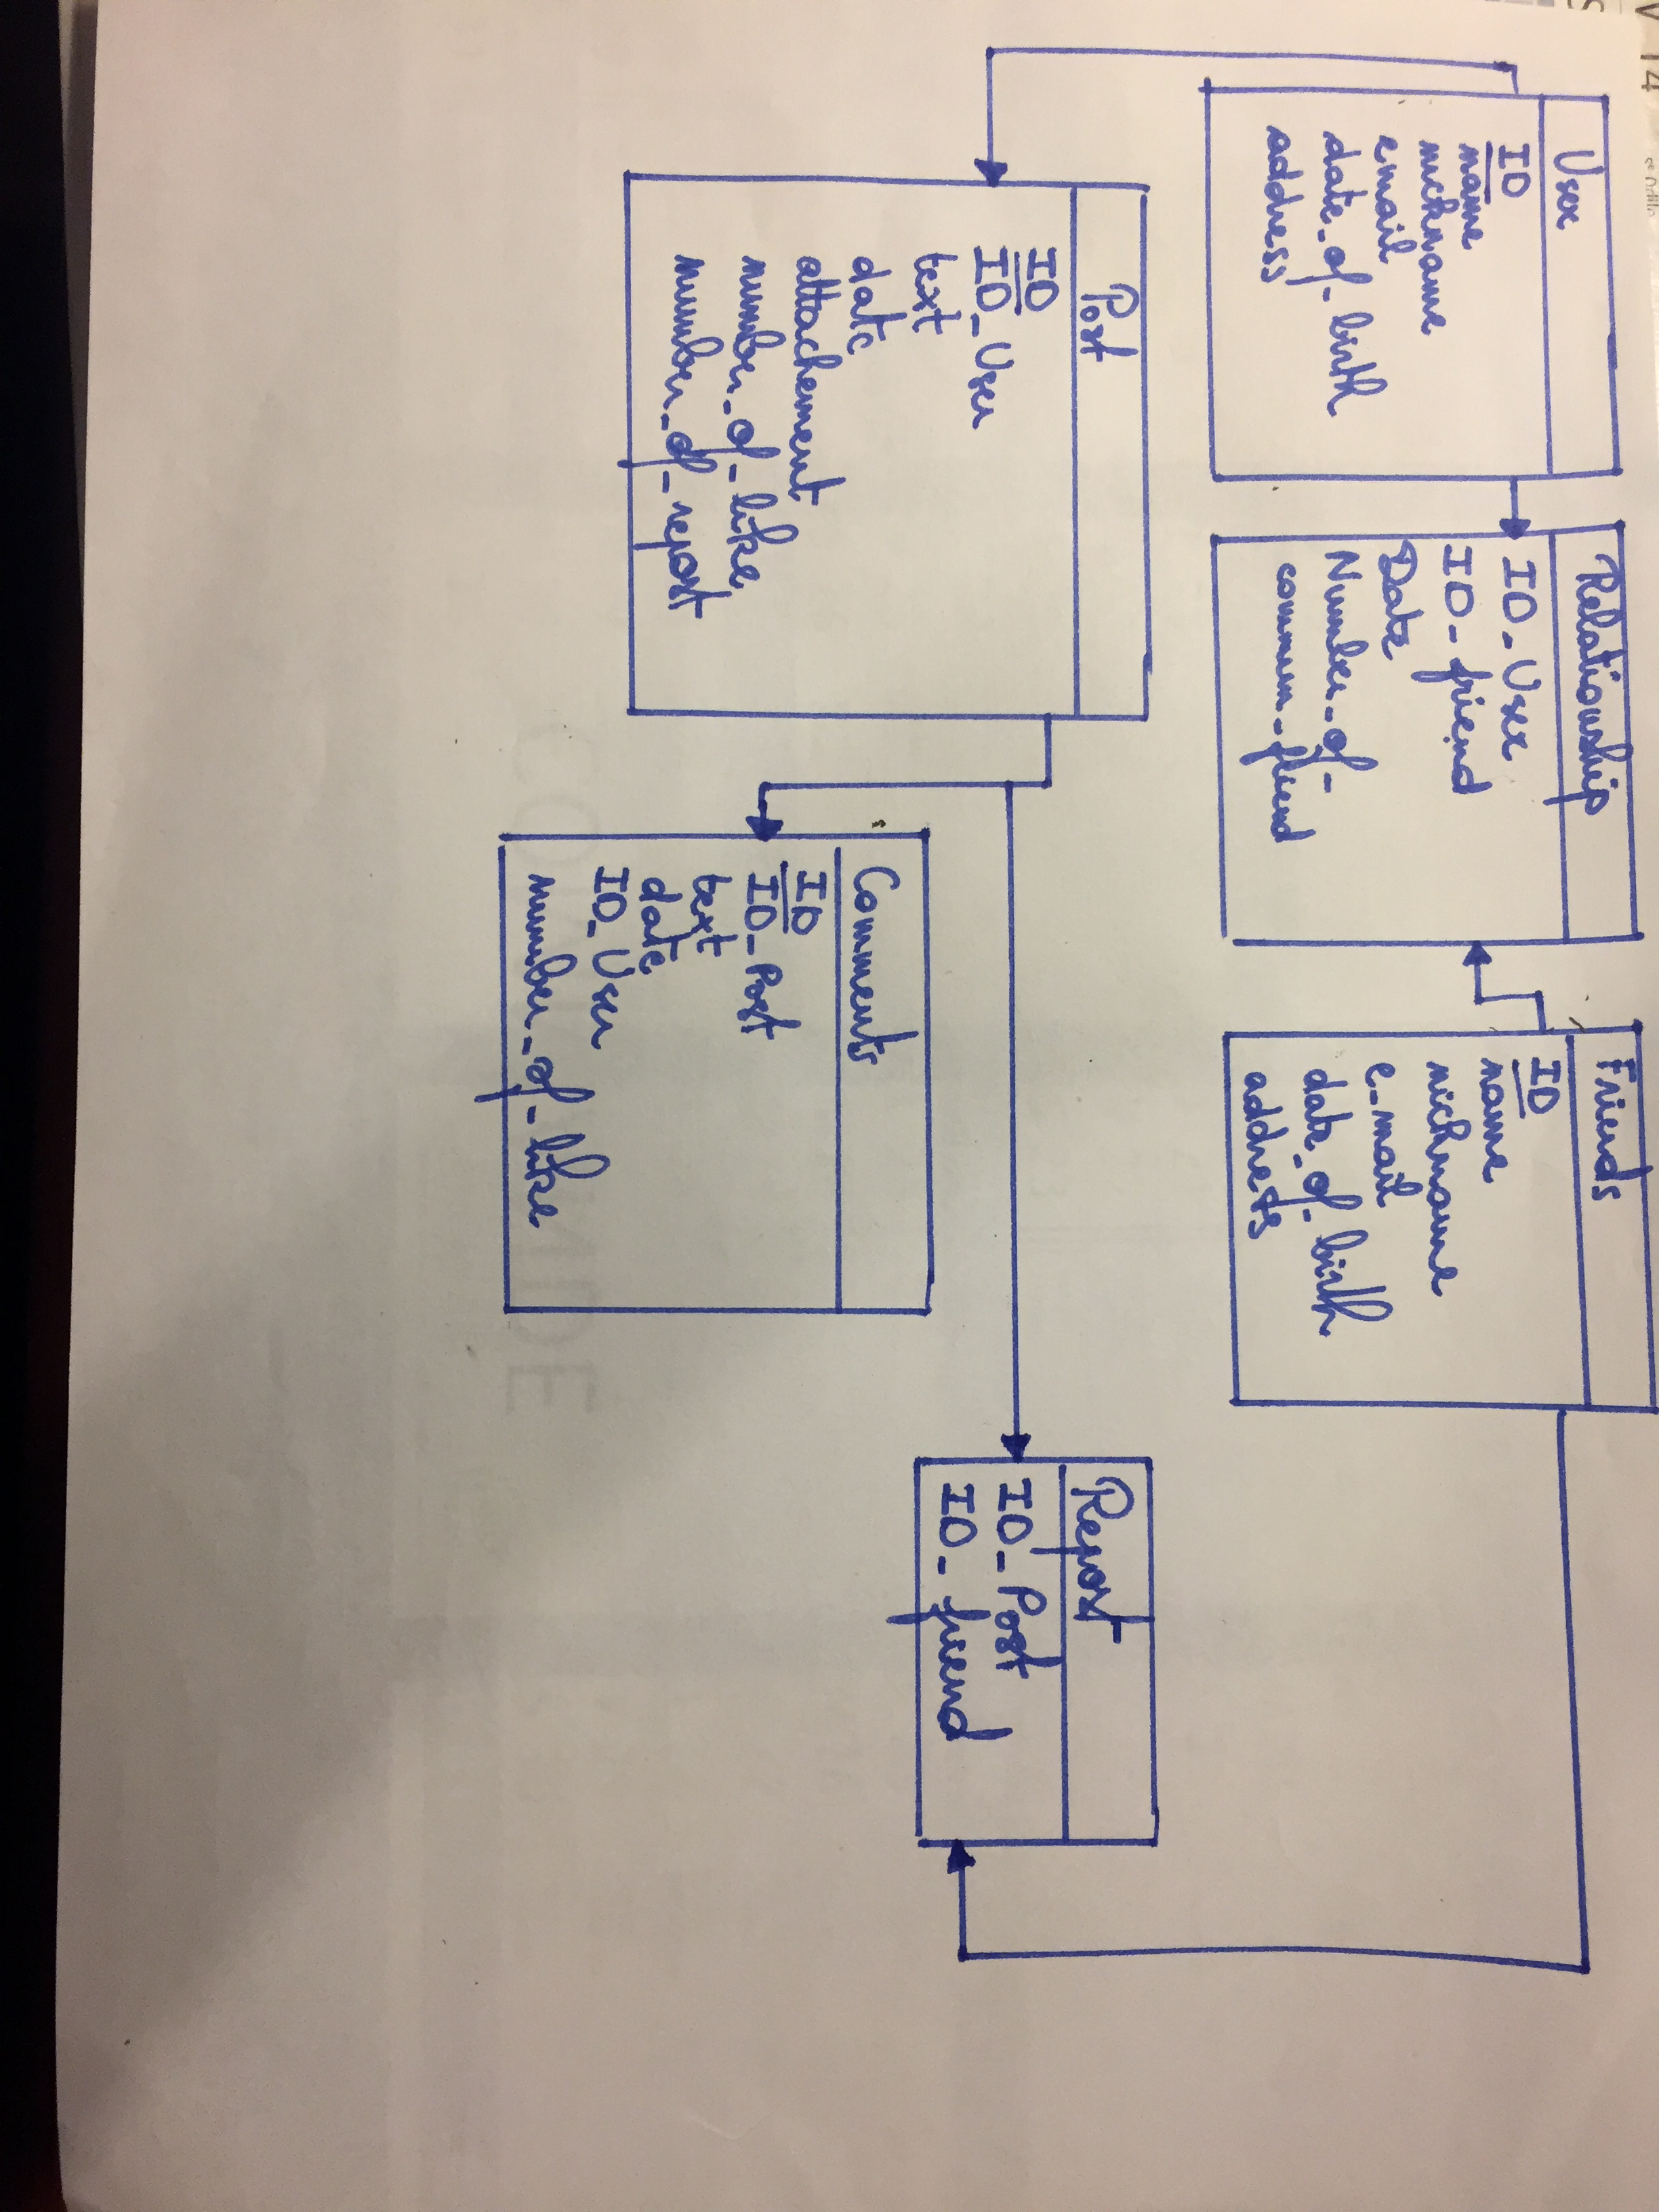 User
ID
name
nickname
email
date_of_birth
address
Relationship
ID_User
ID_friend
Date
Number_of_
commun_friend
Friends
ID
name
nickname
e_mail
date_of_birth
address
Post
ID
ID_User
text
date
attachement
number_of_like
number_of_repost
Comments
ID
ID_Post
text
date
ID_User
number_of_like
Repost
ID_Post
ID_friend